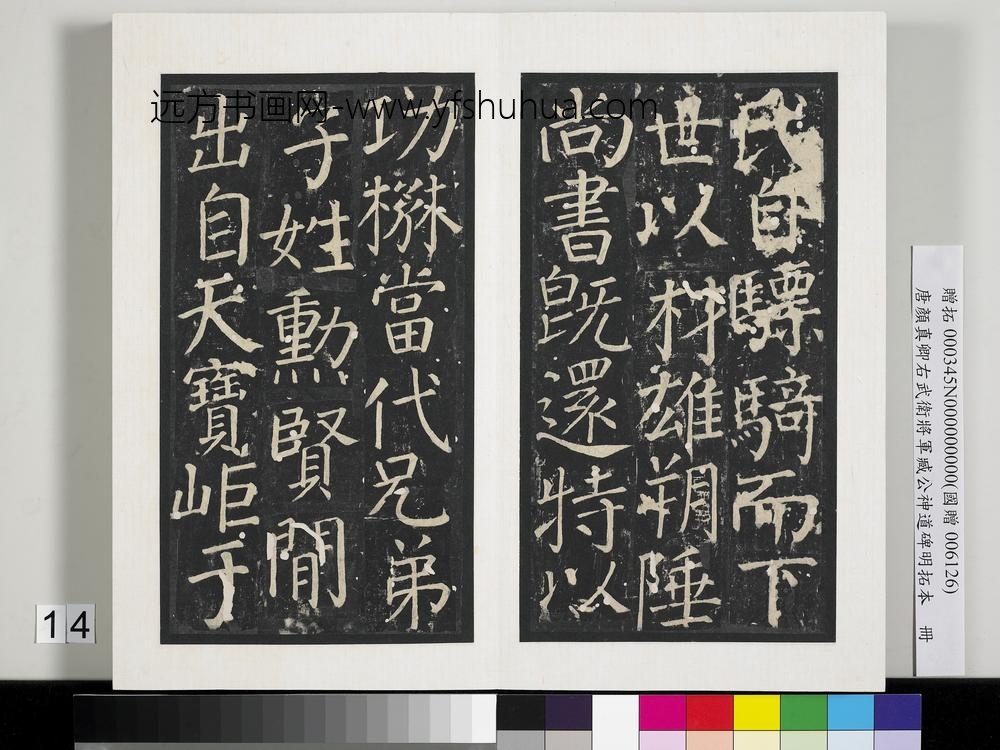 氏自驃騎而下
世以材雄朔陲
尚書既還特以
功楙當代兄弟
子姓勳賢間
出自天寶岠于
远方书画网-www.yfshuhua.com
贈拓 000345N000000000(國贈 006126)
唐顏真卿右武衛將軍臧公神道碑明拓本 冊
14